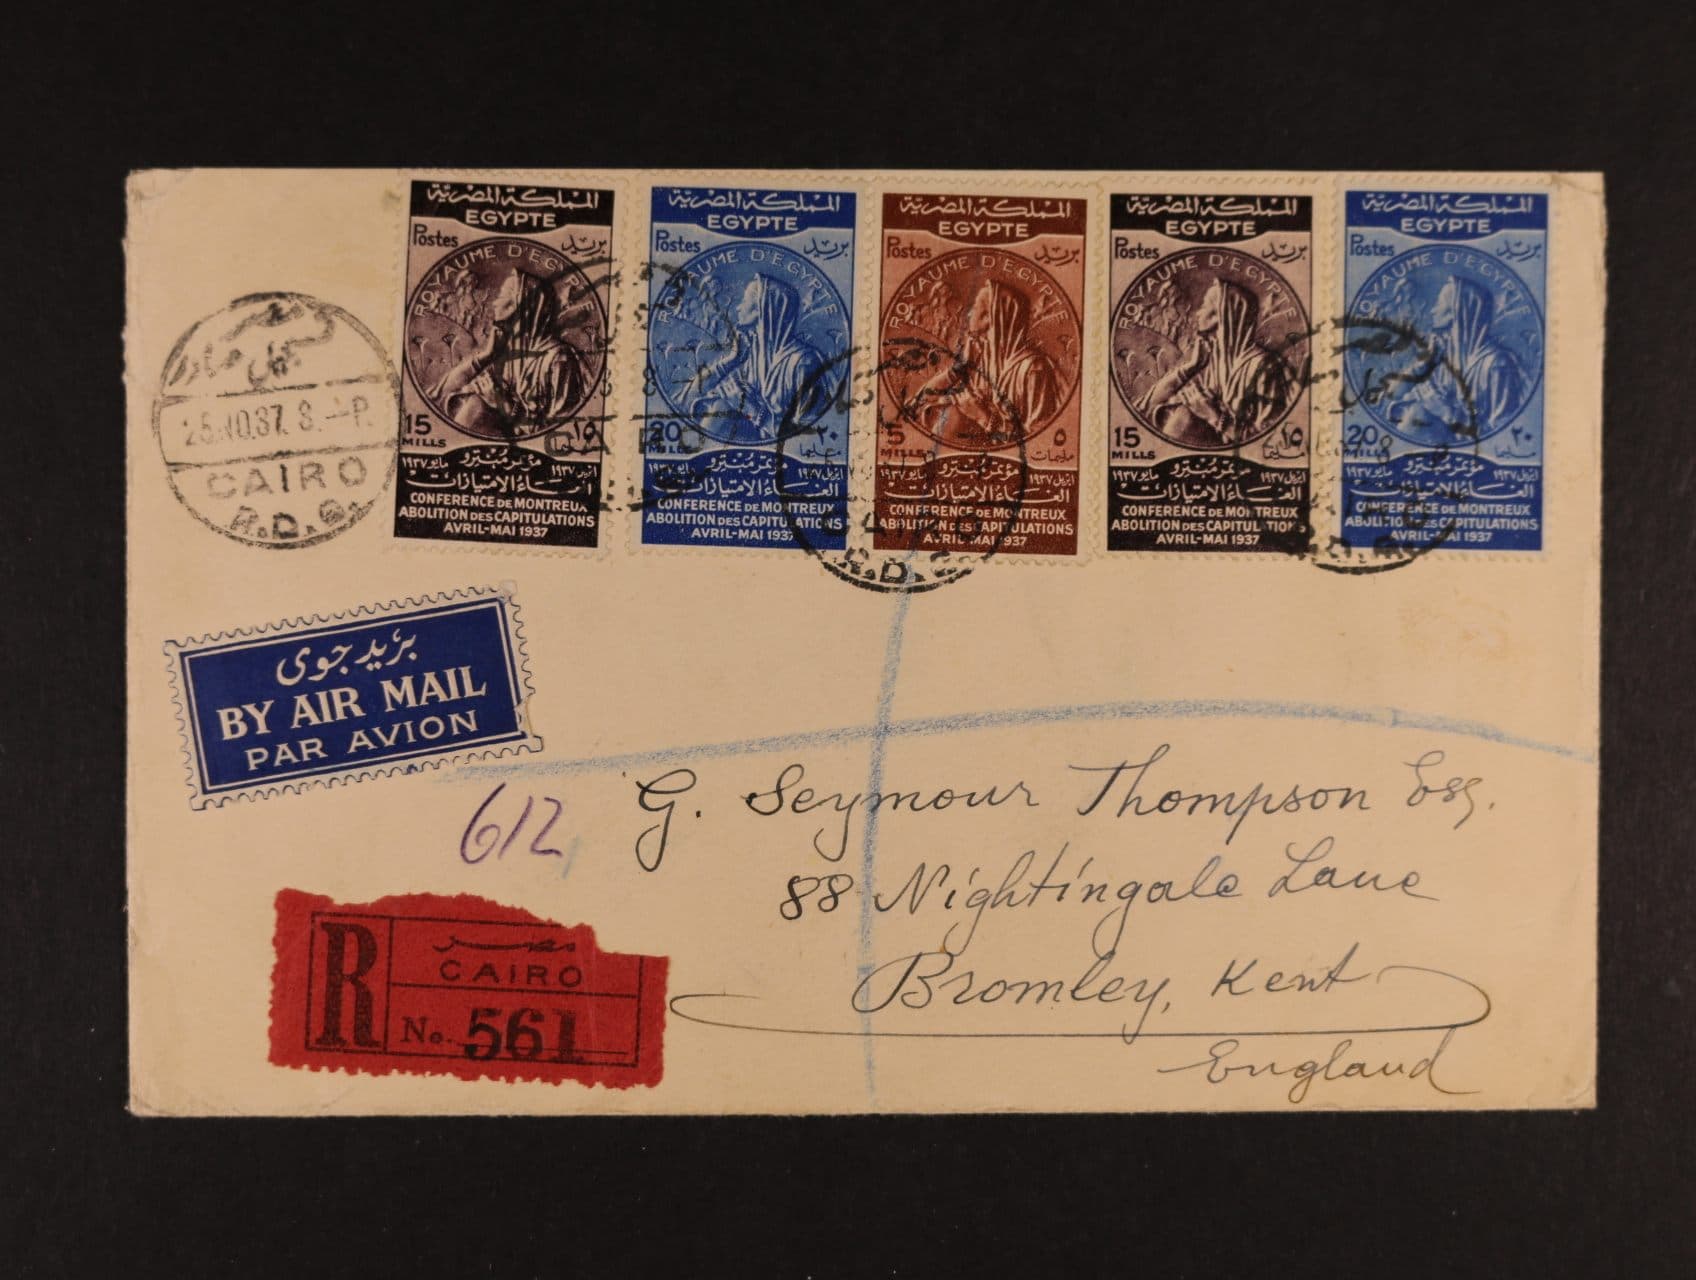 المملكة المصرية
EGYPTE
Postes بريد
ROYAUME D'EGYPTE
15 ١٥
MILLS مليما
مايو ١٩٣٧ مؤتمر مونترو ابريل ١٩٣٧
الغاء الامتيازات
CONFERENCE DE MONTREUX
ABOLITION DES CAPITULATIONS
AVRIL-MAI 1937
المملكة المصرية
EGYPTE
Postes بريد
ROYAUME D'EGYPTE
20 ٢٠
MILLS مليما
مايو ١٩٣٧ مؤتمر مونترو ابريل ١٩٣٧
الغاء الامتيازات
CONFERENCE DE MONTREUX
ABOLITION DES CAPITULATIONS
AVRIL-MAI 1937
المملكة المصرية
EGYPTE
Postes بريد
ROYAUME D'EGYPTE
5 ٥
MILLS مليمات
مايو ١٩٣٧ مؤتمر مونترو ابريل ١٩٣٧
الغاء الامتيازات
CONFERENCE DE MONTREUX
ABOLITION DES CAPITULATIONS
AVRIL-MAI 1937
المملكة المصرية
EGYPTE
Postes بريد
ROYAUME D'EGYPTE
15 ١٥
MILLS مليما
مايو ١٩٣٧ مؤتمر مونترو ابريل ١٩٣٧
الغاء الامتيازات
CONFERENCE DE MONTREUX
ABOLITION DES CAPITULATIONS
AVRIL-MAI 1937
المملكة المصرية
EGYPTE
Postes بريد
ROYAUME D'EGYPTE
20 ٢٠
MILLS مليما
مايو ١٩٣٧ مؤتمر مونترو ابريل ١٩٣٧
الغاء الامتيازات
CONFERENCE DE MONTREUX
ABOLITION DES CAPITULATIONS
AVRIL-MAI 1937
مصر
مسجل صادر
25.10.37. 8.-P.
CAIRO
R.D.G.
CAIRO
R.D.G.
R.D.G.
بريد جوى
BY AIR MAIL
PAR AVION
612
G. Seymour Thompson Esq.
88 Nightingale Lane
Bromley, Kent
England
R
مصر
CAIRO
No. 561